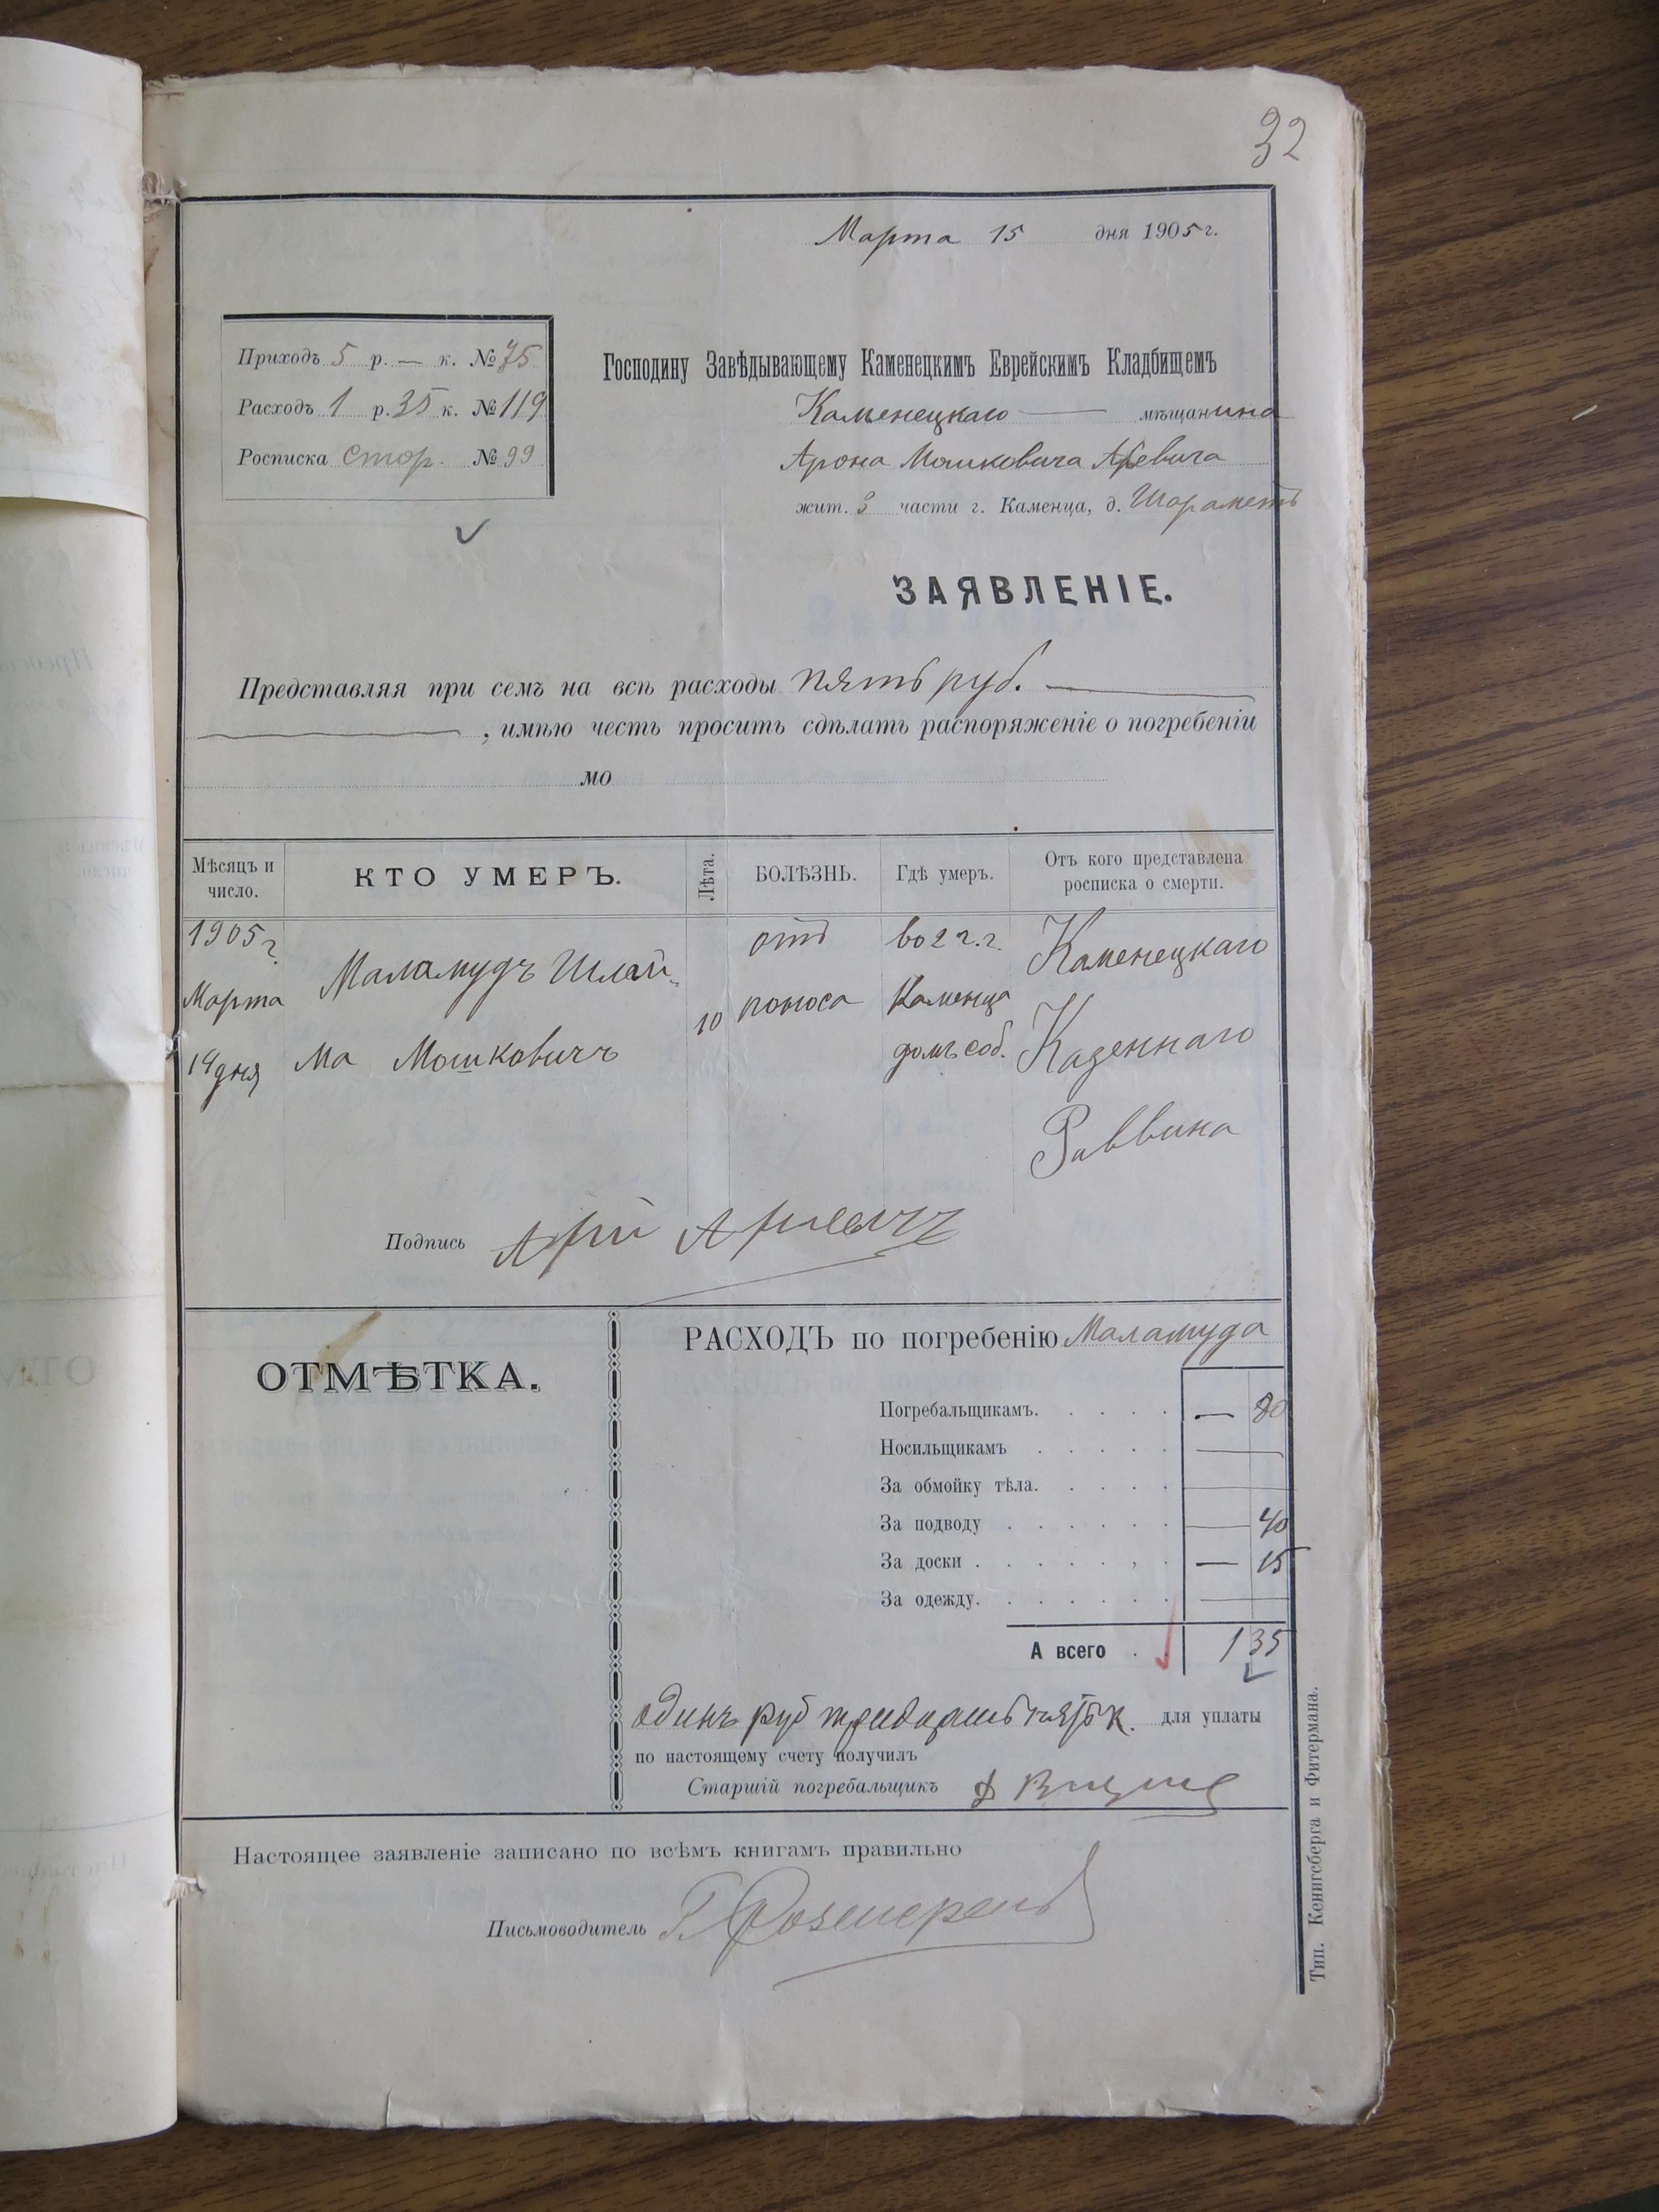 32
Марта 15 дня 1905 г.
Приходъ 5 р. — к. № 75
Расходъ 1 р. 35 к. № 119
Росписка стор. № 99
Господину Завѣдывающему Каменецкимъ Еврейскимъ Кладбищемъ
Каменецкаго — мѣщанина
Арона Мошковича
жит. 3 части г. Каменца, д.
ЗАЯВЛЕНІЕ.
Представляя при семъ на всѣ расходы пять руб. —
—, имѣю честь просить сдѣлать распоряженіе о погребеніи
мо
Мѣсяцъ и число.
КТО УМЕРЪ.
Лѣта.
БОЛѢЗНЬ.
Гдѣ умеръ.
Отъ кого представлена росписка о смерти.
1905 г. Марта 14 дня
Маламудъ Шлай-
ма Мошковичъ
10
отъ поноса
во 2 ч. г. Каменца домъ соб.
Каменецкаго
Казеннаго
Раввина
Подпись
ОТМѢТКА.
РАСХОДЪ по погребенію Маламуда
Погребальщикамъ. — 80
Носильщикамъ —
За обмойку тѣла. —
За подводу — 40
За доски — 15
За одежду. —
А всего 1 35
одинъ руб тридцать пять к. для уплаты
по настоящему счету получилъ
Старшій погребальщикъ
Настоящее заявленіе записано по всѣмъ книгамъ правильно
Письмоводитель
Тип. Кенигсберга и Фитермана.